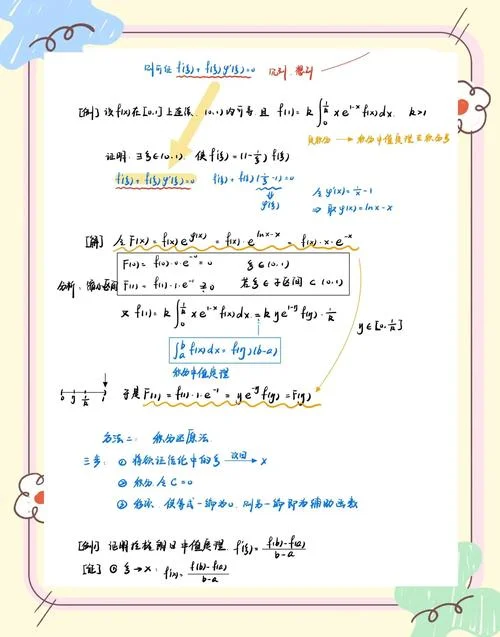 则可证 f'(ξ)+f(ξ)φ'(ξ)=0 
[例] 设f(x)在[0,1]上连续,(0,1)内可导且 f(1)=k∫₀^(1/k) xe^(1-x)f(x)dx. k>1
见积分→积分中值定理
证明:∃ξ∈(0,1). 使f'(ξ)=(1-1/ξ)f(ξ)
f'(ξ)+f(ξ)φ'(ξ)=0 f'(ξ)+f(ξ)(1/ξ-1)=0 令φ'(x)=1/x-1
φ'(ξ) ⇒取φ(x)=lnx-x
[解] 令F(x)=f(x)e^(φ(x))=f(x)·e^(lnx-x)=f(x)·x·e^(-x)
F(0)=f(0)·0·e^(-0)=0 ξ∈(0,1)
分析:缩小区间 F(1)=f(1)·1·e^(-1) 若ξ∈子区间⊂(0,1)
又f(1)=k∫₀^(1/k) xe^(1-x)f(x)dx=kye^(1-y)f(y)·1/k
y∈[0,1/k]
∫ₐᵇf(x)dx=f(y)(b-a)
积分中值定理
0 y 1/k 1
于是F(1)=f(1)·1·e^(-1)=ye^(-y)f(y)=F(y)
方法二:积分还原法.
三步:①将欲证结论中的ξ改回→x
②积分令C=0
③移项,使等式一端为0,则另一端即为辅助函数
[例] 证明拉格朗日中值定理. f'(ξ)=(f(b)-f(a))/(b-a)
[证] ①ξ→x:f'(x)=(f(b)-f(a))/(b-a)